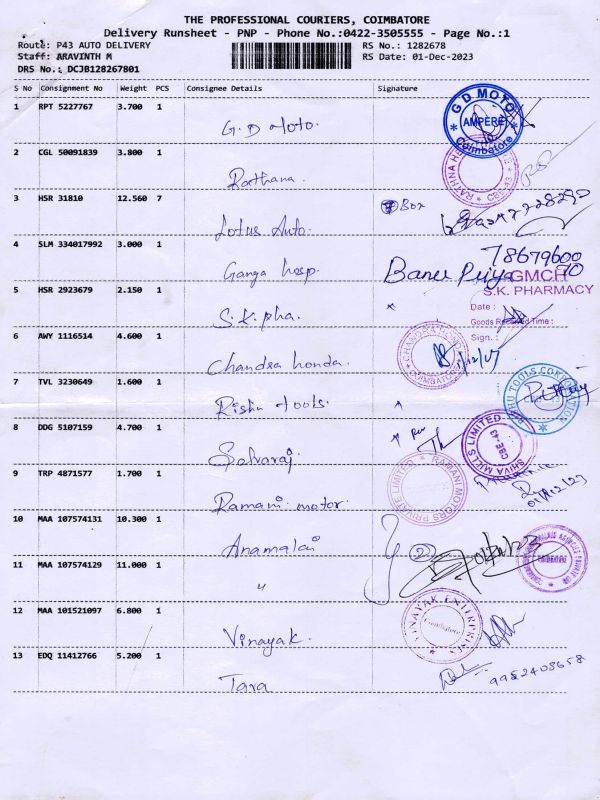 THE PROFESSIONAL COURIERS, COIMBATORE
Delivery Runsheet - PNP - Phone No.:0422-3505555 - Page No.:1
Route: P43 AUTO DELIVERY RS No.: 1282678
Staff: ARAVINTH M RS Date: 01-Dec-2023
DRS No.: DCJB128267801
S No Consignment No Weight PCS Consignee Details Signature
1 RPT 5227767 3.700 1
G.D Moto.
G D MOTO
AMPERE
Coimbatore
2 CGL 50091839 3.800 1
Rathana.
RATHNA
CBE-43
3 HSR 31810 12.560 7
Box
Lotus Auto.
4 SLM 334017992 3.000 1
7867960090
Ganga hosp.
Banu Priya
GMCH
S.K. PHARMACY
5 HSR 2923679 2.150 1
Date :
S.k. pha.
Goods Received Time :
Sign. :
6 AWY 1116514 4.600 1
Chandra honda.
CHANDRA
COIMBATORE
7 TVL 3230649 1.600 1
Rishu tools.
TOOLS CORPORATION
8 DDG 5107159 4.700 1
Selvaraj
SHIVA MILLS LIMITED
CBE-43
9 TRP 4871577 1.700 1
Ramani motor.
RAMANI MOTORS PRIVATE LIMITED
01/12/23
10 MAA 107574131 10.300 1
Anamalai
2
11 MAA 107574129 11.000 1
"
12 MAA 101521097 6.800 1
Vinayak.
VINAYAK ENTERPRISES
Coimbatore
13 EDQ 11412766 5.200 1
Tara
9952408658